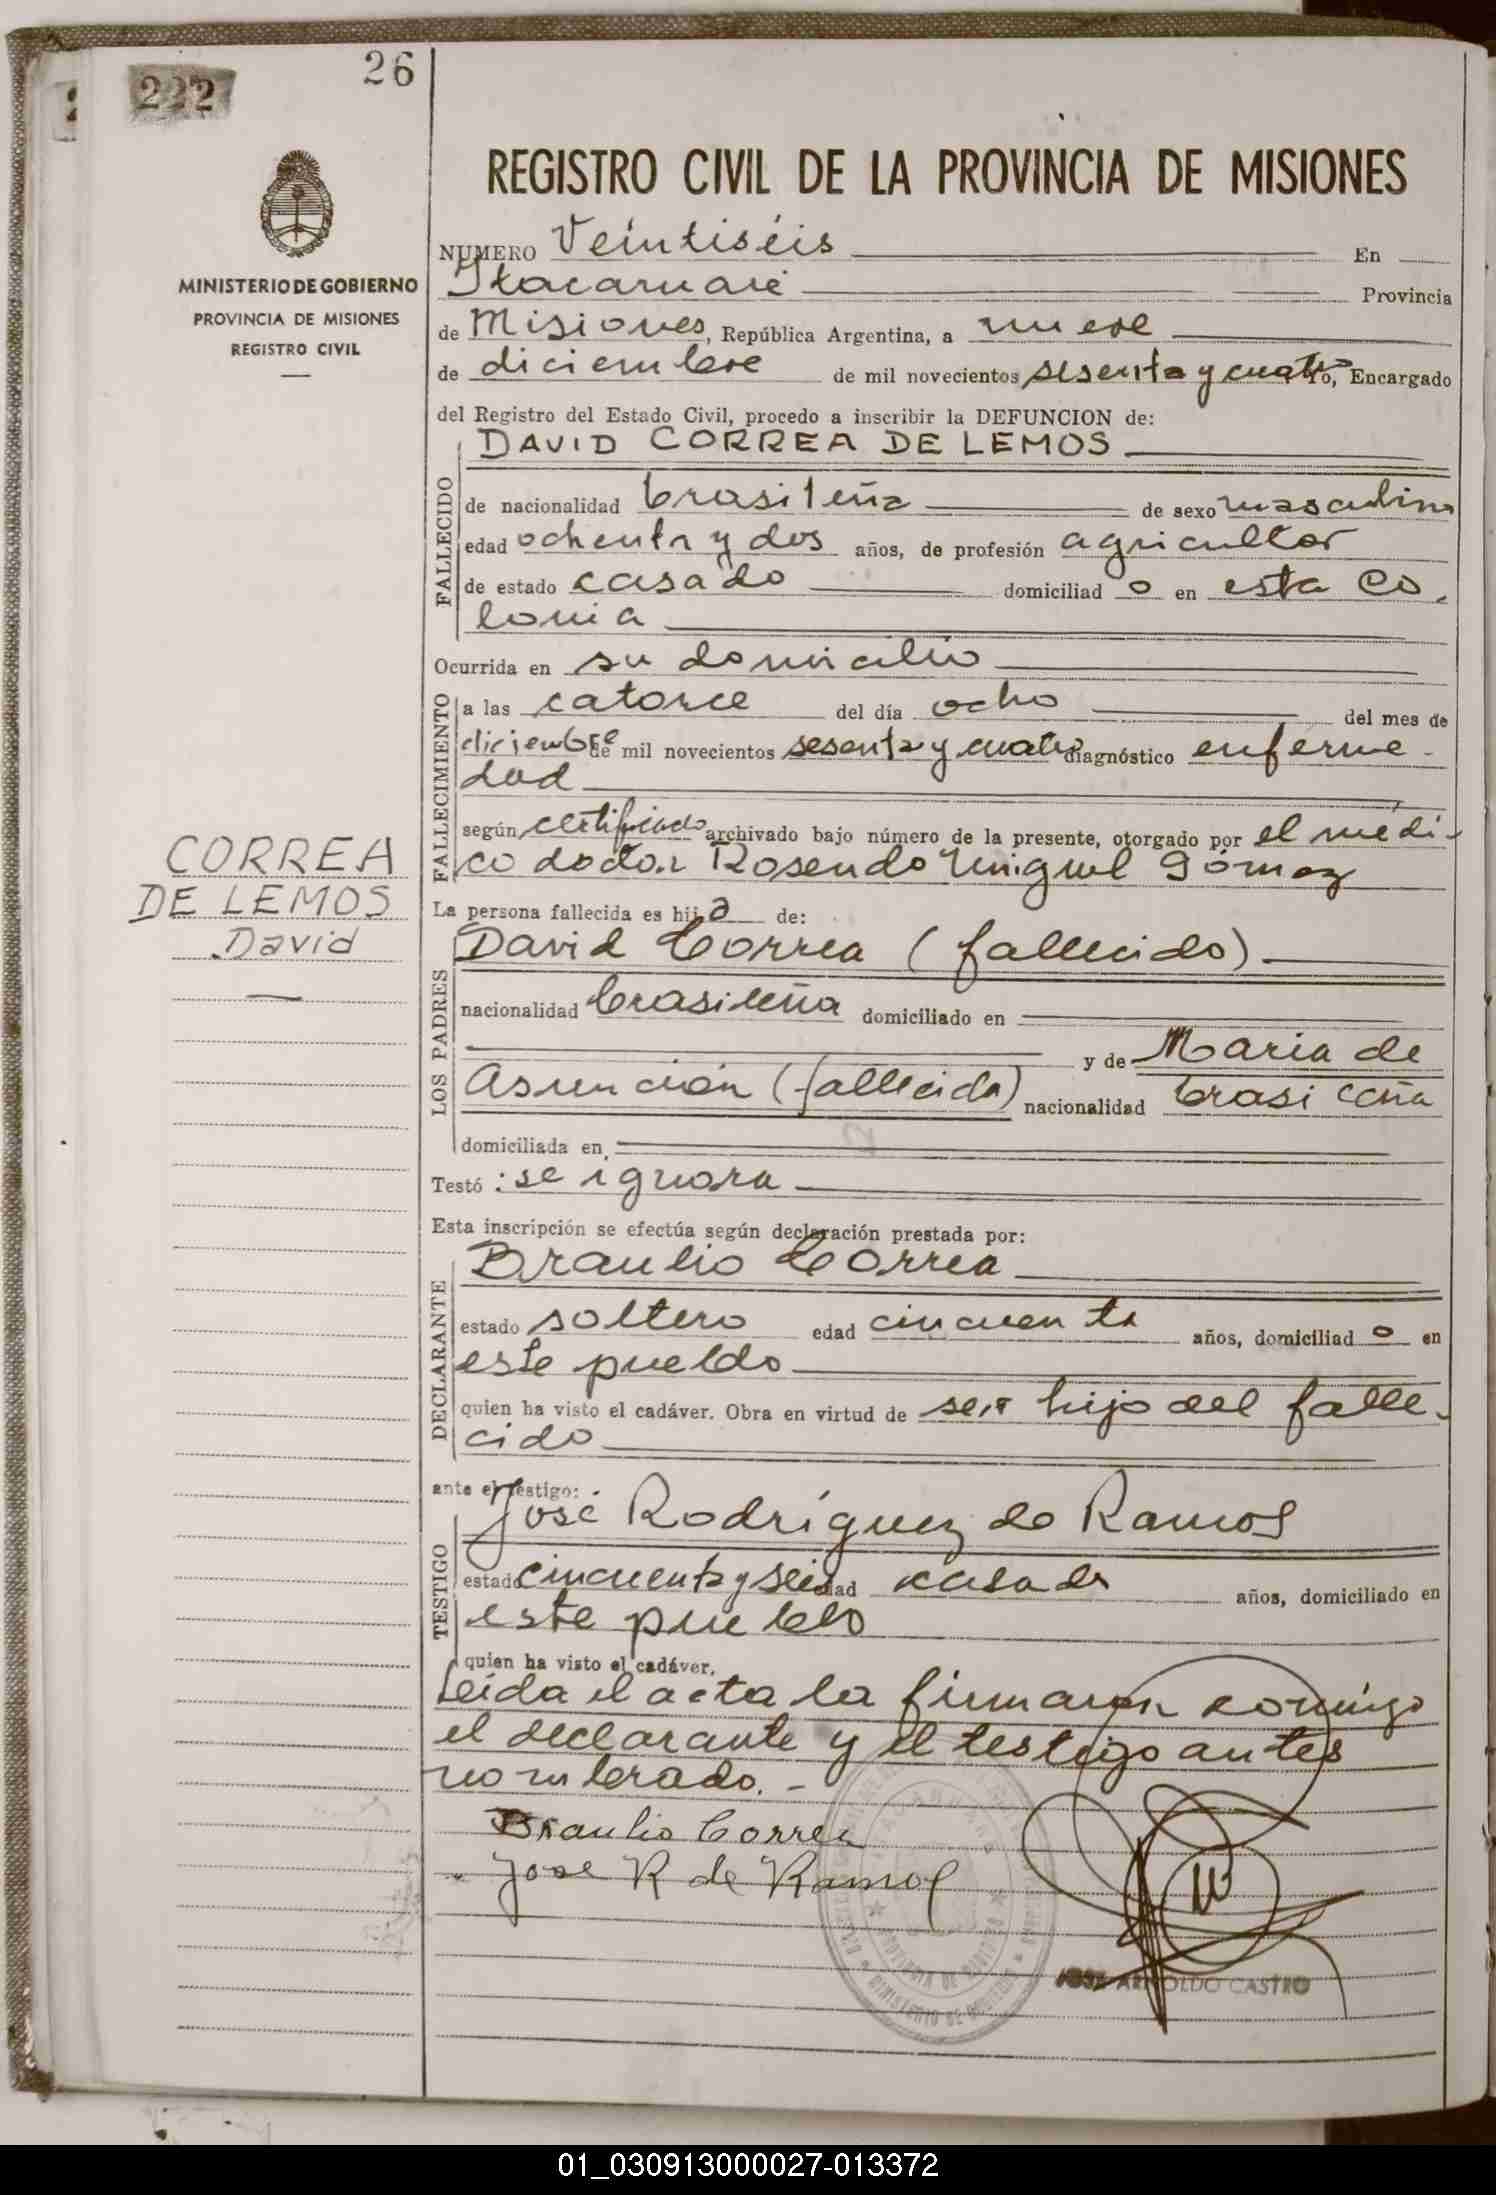 222
26
MINISTERIO DE GOBIERNO
PROVINCIA DE MISIONES
REGISTRO CIVIL
CORREA
DE LEMOS
David
REGISTRO CIVIL DE LA PROVINCIA DE MISIONES
NUMERO Veintiséis En
Itacaruaré Provincia
de Misiones, República Argentina, a nueve
de diciembre de mil novecientos sesenta y cuatro, Encargado
del Registro del Estado Civil, procedo a inscribir la DEFUNCION de:
DAVID CORREA DE LEMOS
FALLECIDO
de nacionalidad brasileña de sexo masculino
edad ochenta y dos años, de profesión agricultor
de estado casado domiciliad o en esta co-
lonia
Ocurrida en su domicilio
FALLECIMIENTO
a las catorce del día ocho del mes de
diciembre de mil novecientos sesenta y cuatro diagnóstico enferme-
dad
según certificado archivado bajo número de la presente, otorgado por el médi-
co doctor Rosendo Miguel Gómez
La persona fallecida es hijo de:
LOS PADRES
David Correa (fallecido)
nacionalidad brasileña domiciliado en
y de María de
Asunción (fallecida) nacionalidad brasileña
domiciliada en
Testó: se ignora
Esta inscripción se efectúa según declaración prestada por:
DECLARANTE
Braulio Correa
estado soltero edad cincuenta años, domiciliad o en
este pueblo
quien ha visto el cadáver. Obra en virtud de ser hijo del falle-
cido
ante el testigo:
TESTIGO
José Rodríguez de Ramos
estado cincuenta y seis edad casado años, domiciliado en
este pueblo
quien ha visto el cadáver.
Leída el acta la firmaron conmigo
el declarante y el testigo antes
nombrado.-
Braulio Correa
Jose R de Ramos
JOSE ARNOLDO CASTRO
01_030913000027-013372